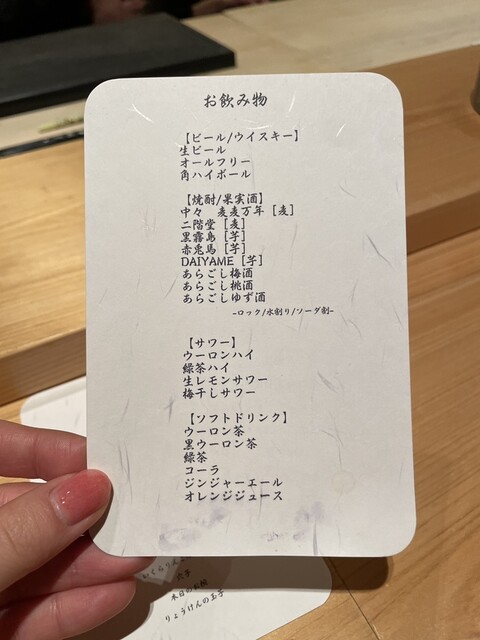 お飲み物
【ビール/ウイスキー】
生ビール
オールフリー
角ハイボール
【焼酎/果実酒】
中々　麦麦万年［麦］
二階堂［麦］
黒霧島［芋］
赤兎馬［芋］
DAIYAME［芋］
あらごし梅酒
あらごし桃酒
あらごしゆず酒
-ロック/水割り/ソーダ割-
【サワー】
ウーロンハイ
緑茶ハイ
生レモンサワー
梅干しサワー
【ソフトドリンク】
ウーロン茶
黒ウーロン茶
緑茶
コーラ
ジンジャーエール
オレンジジュース
穴子
本日のお椀
りょうけんの玉子